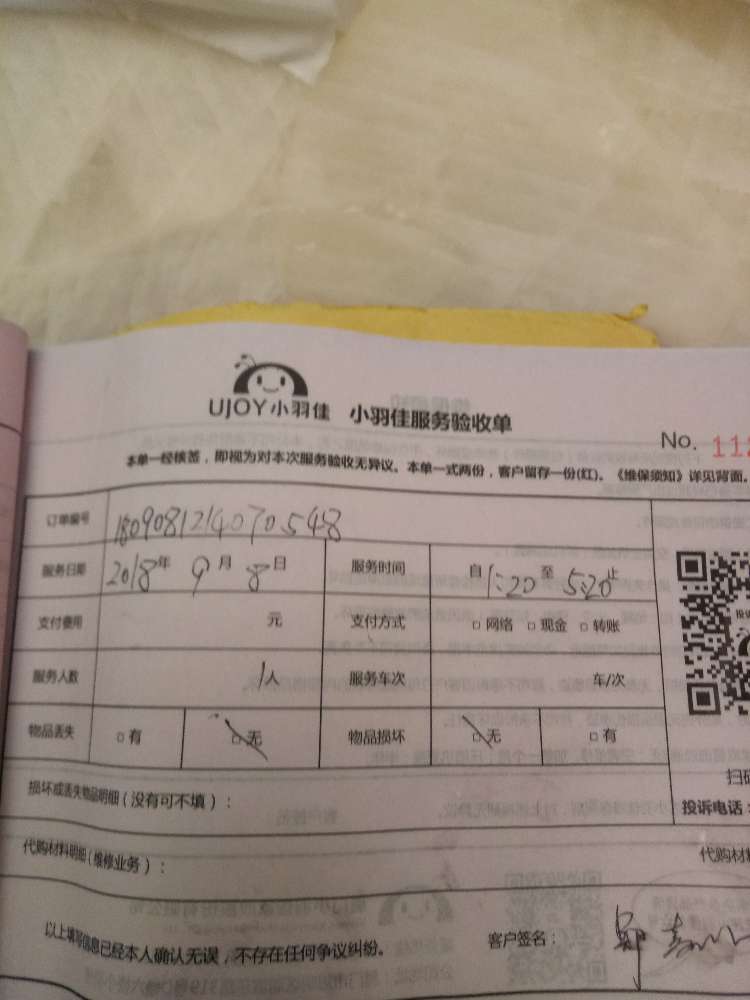 UJOY小羽佳 小羽佳服务验收单
No. 112
本单一经核签，即视为对本次服务验收无异议。本单一式两份，客户留存一份(红)。《维保须知》详见背面。
订单编号 1809081214070548
服务日期 2018年 9月 8日 服务时间 自1:20至5:20止
支付费用 元 支付方式 □网络 □现金 □转账
服务人数 1人 服务车次 车/次
物品丢失 □有 □无 物品损坏 □无 □有
扫码
损坏或丢失物品明细（没有可不填）：
投诉电话：
代购材料明细(维修业务)： 代购材料
以上填写信息已经本人确认无误，不存在任何争议纠纷。 客户签名： 郭